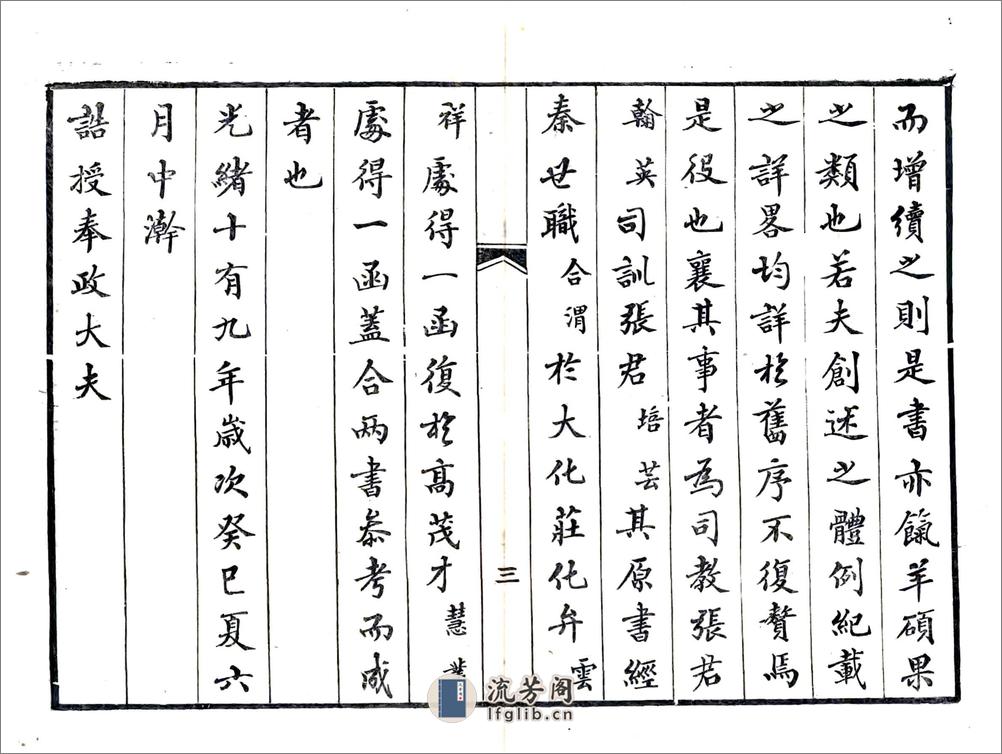 而增續之則是書亦餼羊碩果
之類也若夫創述之體例紀載
之詳畧均詳於舊序不復贅焉
是役也襄其事者為司教張君
翰英司訓張君培芸其原書經
秦世職合渭於大化莊化弁雲
三
祥處得一函復於高茂才慧
處得一函蓋合兩書叅考而成
者也
光緒十有九年歲次癸巳夏六
月中澣
誥授奉政大夫
流芳阁
lfglib.cn